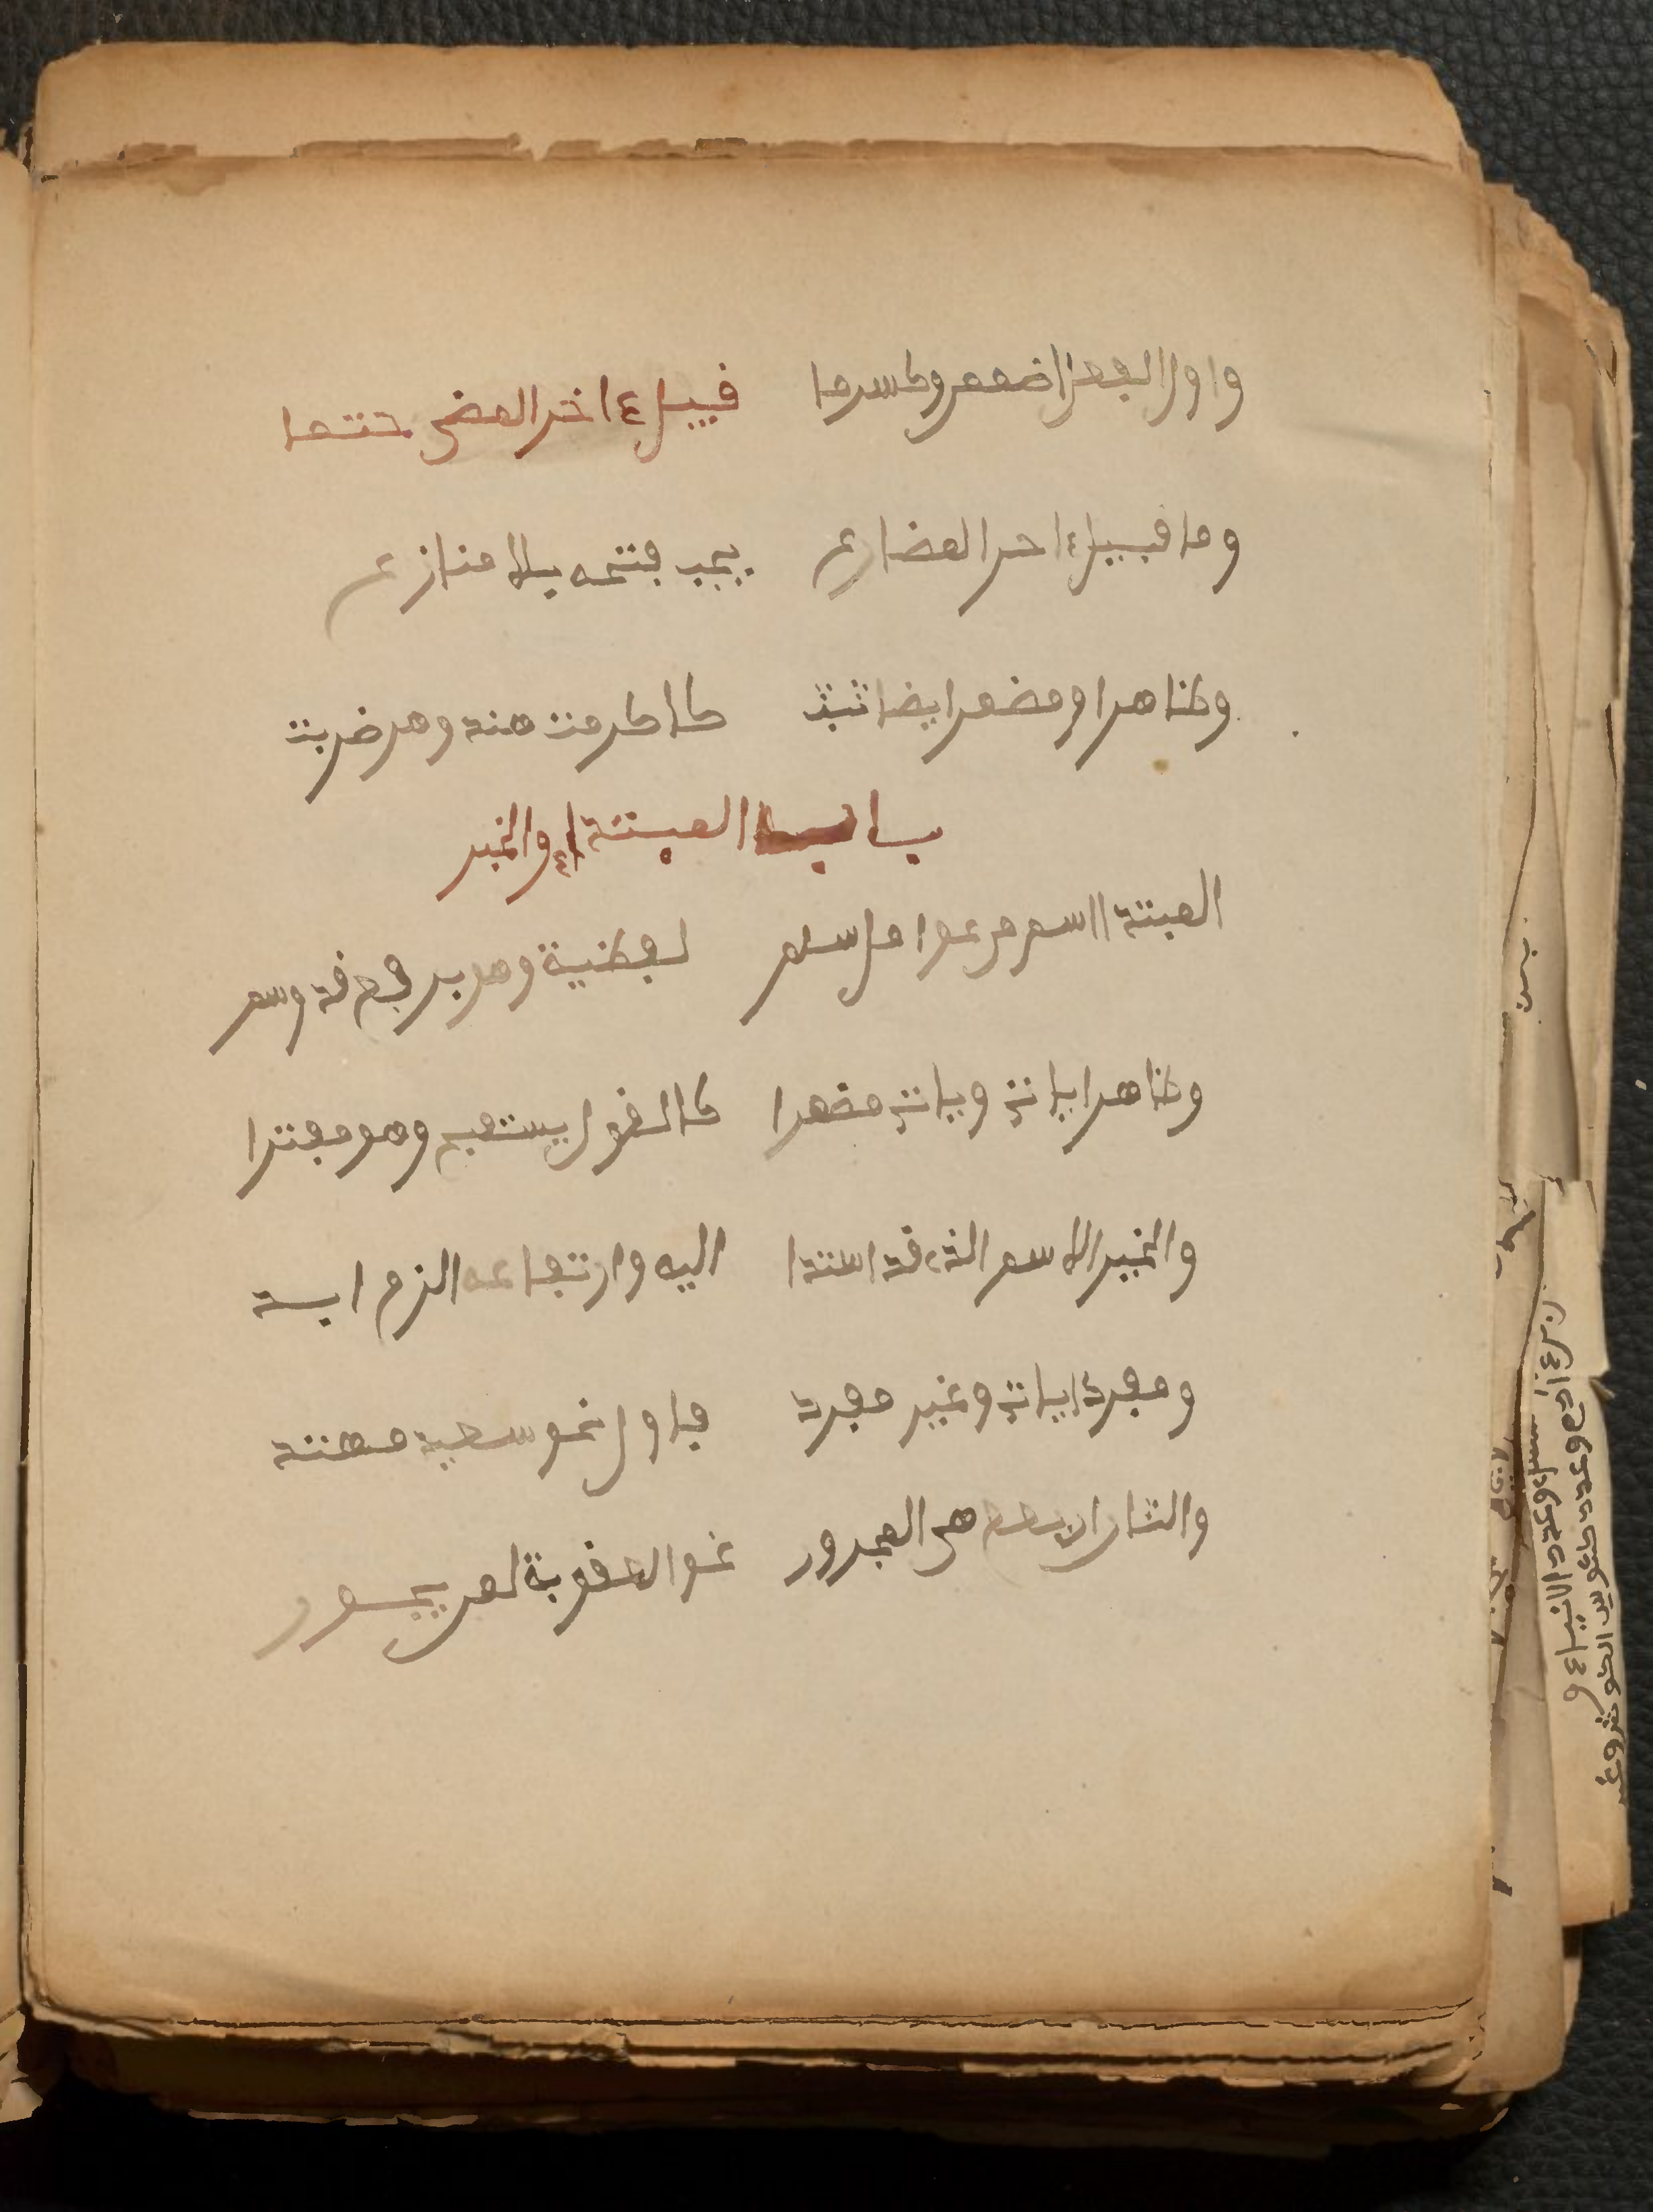 واول الفعل اضمم واكسر ما قبيل ءاخر المضى حتما
وما قبيل ءاخر المضارع يجب فتحه بلا منازع
وظاهرا ومضمرا ايضا ثبت كاكرمت هند وهى ضربت
باب المبتدإ والخبر
المبتدا اسم من عوامل سلم لفظية وهو برفع قد وسم
وظاهرا ياتي وياتي مضمرا كالقول يستقبح وهو مفترا
والخبر الاسم الذي قد اسندا اليه وارتفاعه الزم ابدا
ومفردا ياتي وغير مفرد فاول نحو سعيد مهتد
والثان اربعة هى المجرور نحو العقوبة لمن يجور